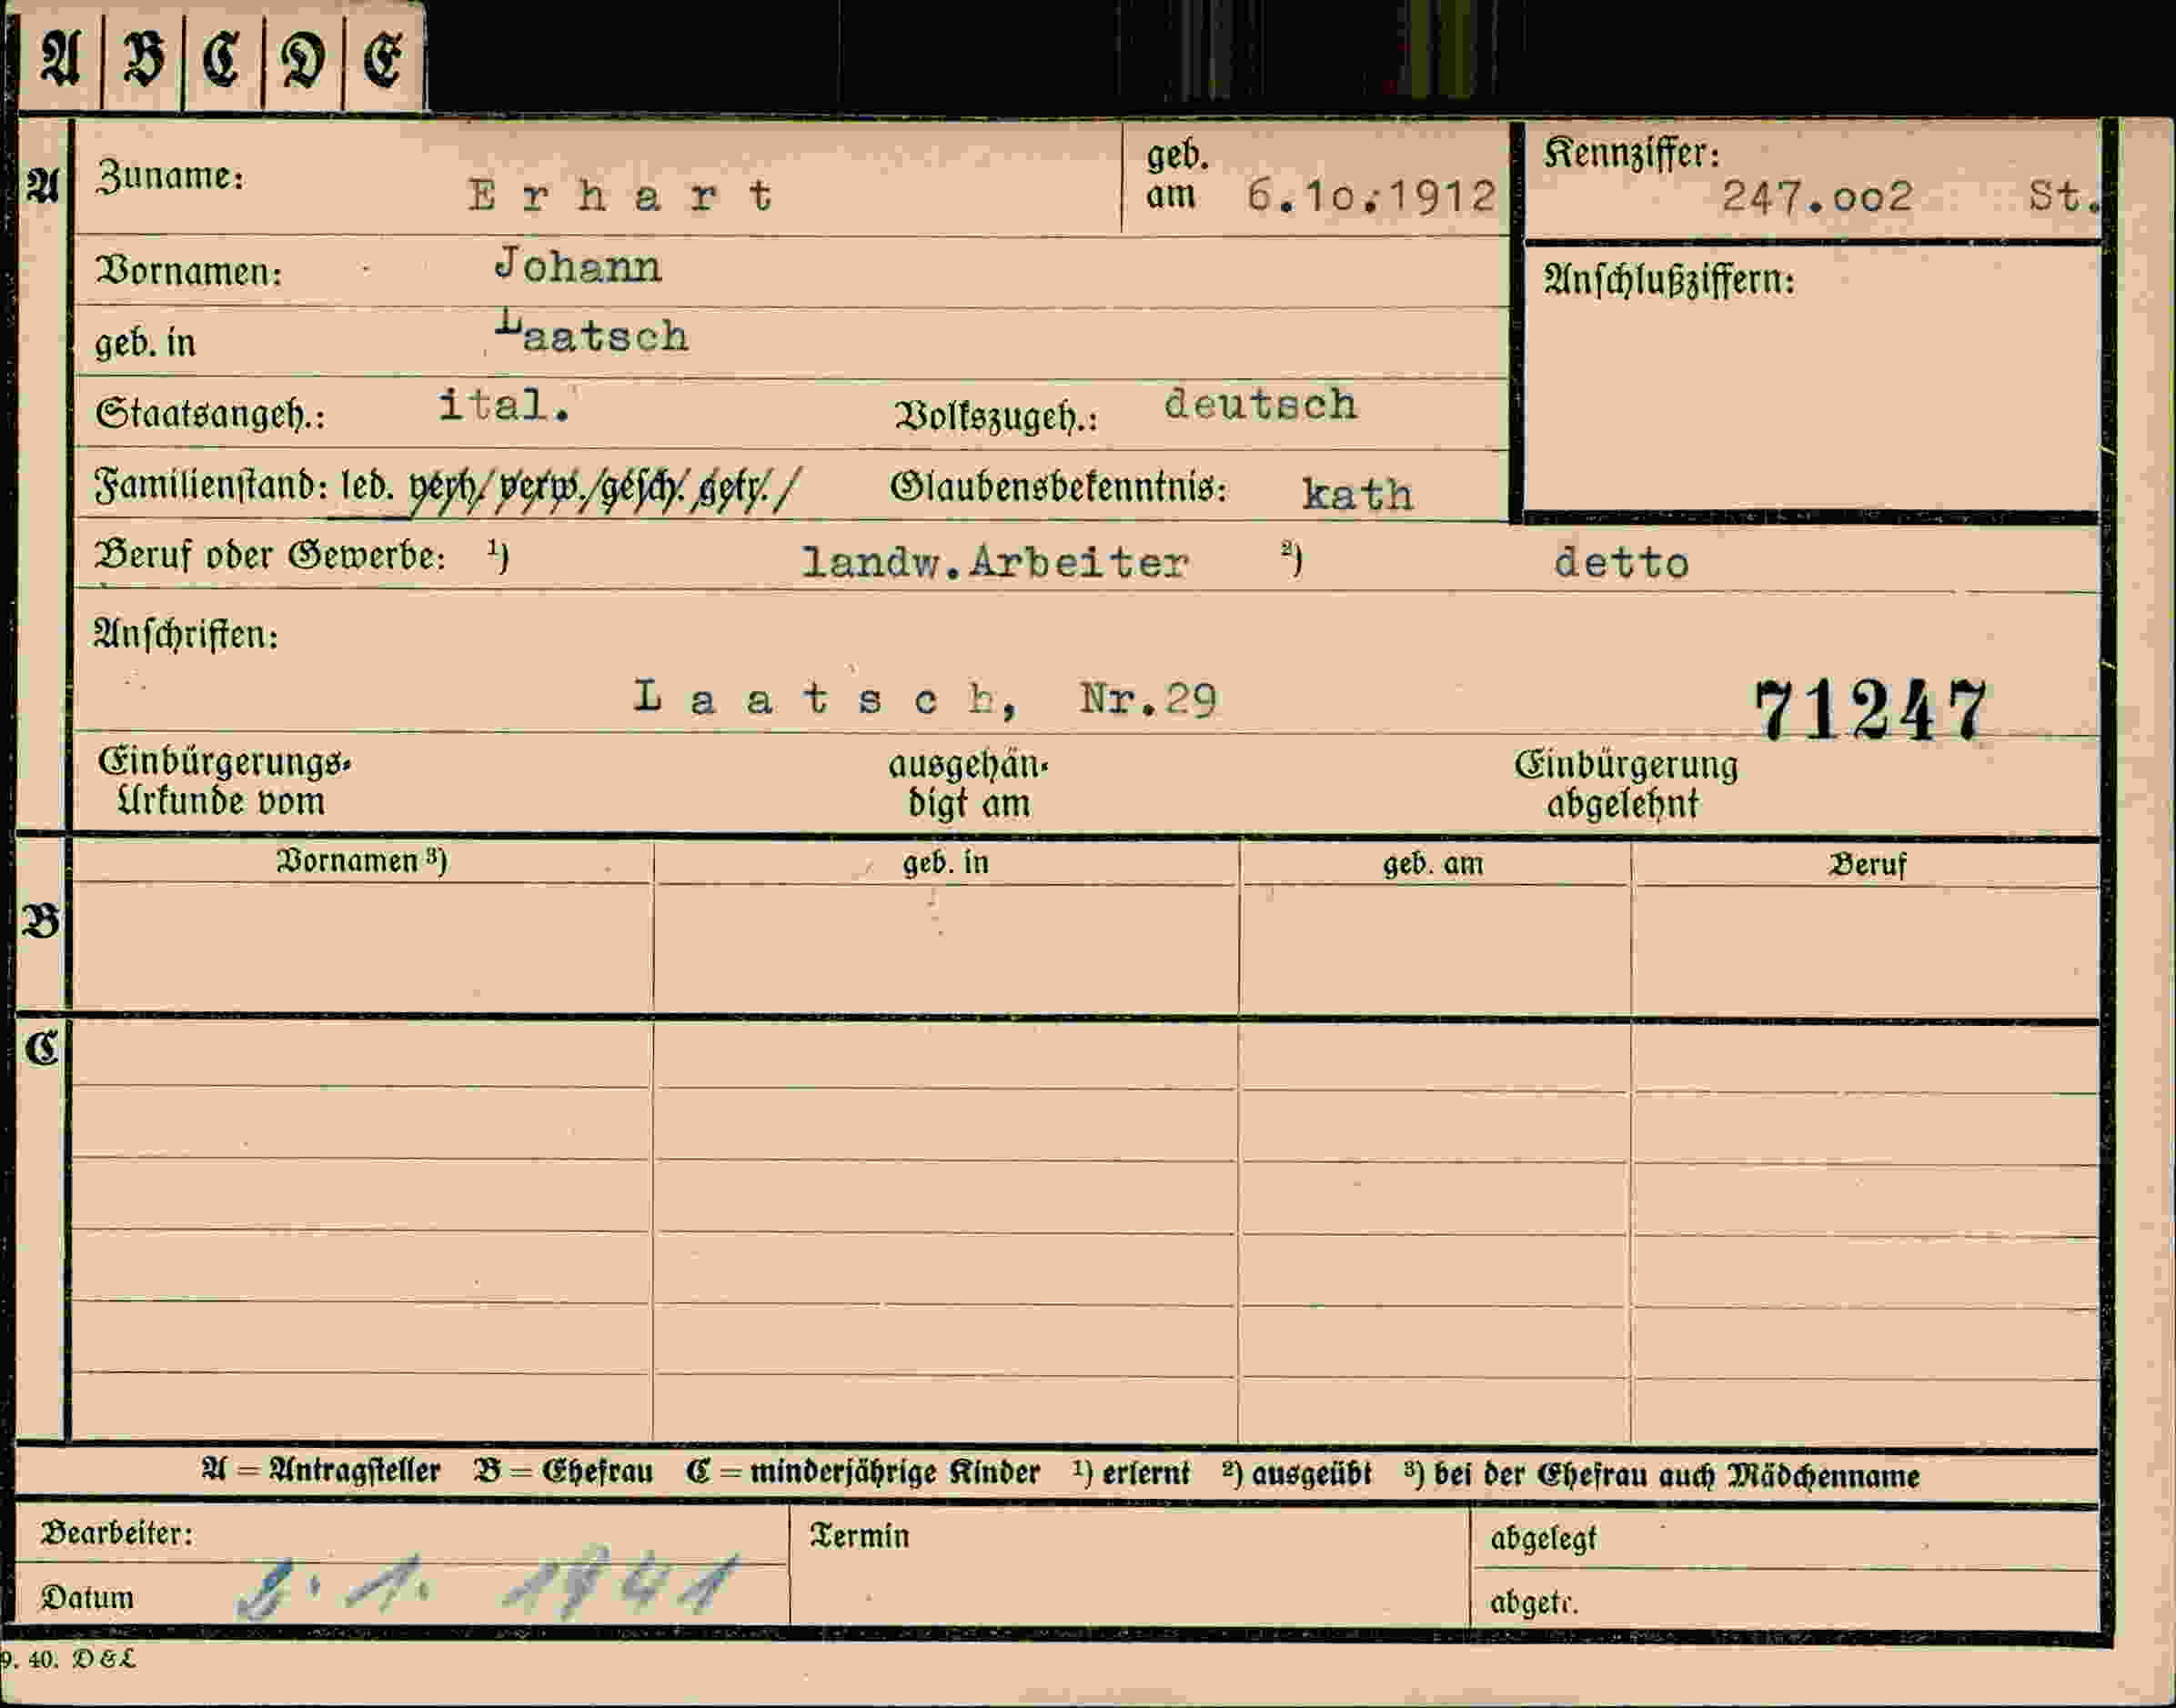 A B C D E
A
Zuname: Erhart geb. am 6.10.1912 Kennziffer: 247.002 St.
Vornamen: Johann Anschlußziffern:
geb. in Laatsch
Staatsangeh.: ital. Volkszugeh.: deutsch
Familienstand: led. verh./verw./gesch. getr./ Glaubensbekenntnis: kath
Beruf oder Gewerbe: ¹) landw.Arbeiter ²) detto
Anschriften:
Laatsch, Nr.29 71247
Einbürgerungs-Urkunde vom ausgehändigt am Einbürgerung abgelehnt
Vornamen ³) geb. in geb. am Beruf
B
C
A = Antragsteller B = Ehefrau C = minderjährige Kinder ¹) erlernt ²) ausgeübt ³) bei der Ehefrau auch Mädchenname
Bearbeiter: Termin abgelegt
Datum 1. 1941 abgetr.
9. 40. D & L